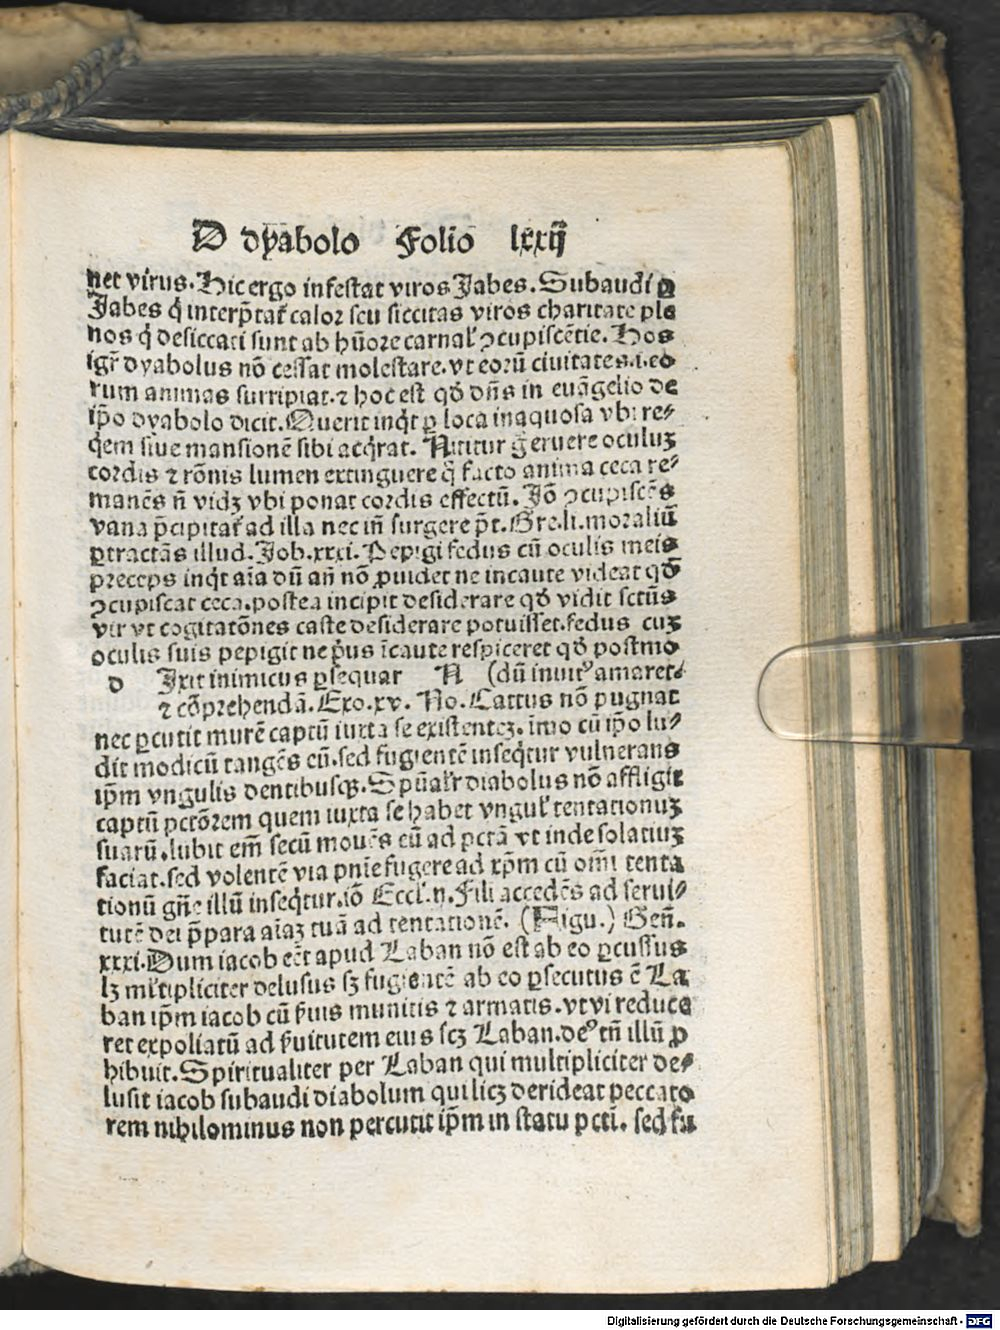 D dyabolo Folio lxxij
net virus. Hic ergo infestat viros Jabes. Subaudi ꝑ
Jabes q̇ interp̄tat᷑ calor seu siccitas viros charitate ple
nos q̇ desiccati sunt ab hūore carnal᷑ ꝯcupiscētie. Hos
igr̄ dyabolus nō cessat molestare. vt eorū ciuitates .i. eo
rum animas surripiat. ⁊ hoc est qđ dn̄s in euāgelio de
ip̄o dyabolo dicit. Querit inqt ꝑ loca inaquosa vbi re⸗
q̇em siue mansionē sibi acq̇rat. Nititur g̊ eruere oculuꝫ
cordis ⁊ rōnis lumen extinguere q̊ facto anima ceca re⸗
manēs n̄ vidꝫ vbi ponat cordis effectū. Jō ꝯcupiscēs
vana p̄cipitat᷑ ad illa nec in̄ surgere p̄t. Gre. li. moraliū
ꝑtractās illud. Job. xxxi. Pepigi fedus cū oculis meis
preceps inq̇t aīa dū an̄ nō ꝓuidet ne incaute videat qđ
ꝯcupiscat ceca. postea incipit desiderare qđ vidit sctūs
vir vt cogitatōnes caste desiderare potuisset. fedus cuꝫ
oculis suis pepigit ne p̄us īcaute respiceret qđ postmo
D Jxit inimicus ꝑsequar N (dū inuitꝰ amaret.
⁊ cōprehendā. Exo. xv. No. Cattus nō pugnat
nec ꝑcutit murē captū iuxta se existenteꝫ. imo cū ip̄o lu⸗
dit modicū tangēs eū. sed fugientē inseq̇tur vulnerans
ip̄m vngulis dentibusqꝫ. Spūal᷑r diabolus nō affligit
captū pctōrem quem iuxta se habet vngul᷑ tentationuꝫ
suarū. lubit em̄ secū mouēs eū ad pctā vt inde solatiuꝫ
faciat. sed volentē via pnīe fugere ad xp̄m cū om̄i tenta
tionū gn̄e illū inseq̇tur. iō Eccl᷑. ij. Fili accedēs ad serui⸗
tutē dei p̄para aīaꝫ tuā ad tentationē. (Figu.) Gen̄.
xxxi. Dum iacob eēt apud Laban nō est ab eo ꝑcussus
lꝫ ml᷑tipliciter delusus sꝫ fugientē ab eo ꝑsecutus ē La
ban ip̄m iacob cū f̄uis munitis ⁊ armatis. vt vi reduce
ret expoliatū ad f̄uitutem eius scꝫ Laban. deꝰ tn̄ illū ꝓ
hibuit. Spiritualiter per Laban qui multipliciter de⸗
lusit iacob subaudi diabolum qui licꝫ derideat peccato
rem nihilominus non percutit ip̄m in statu pcti. sed fu
Digitalisierung gefördert durch die Deutsche Forschungsgemeinschaft - DFG